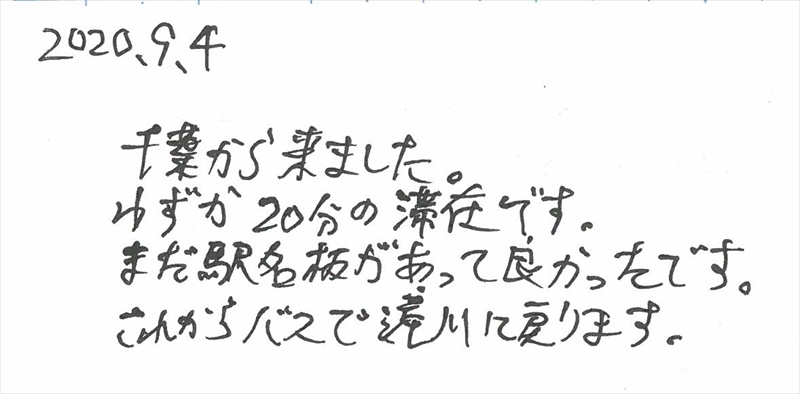 2020、9、4
千葉から来ました。
わずか20分の滞在です。
まだ駅名板があって良かったです。
これからバスで滝川に戻ります。